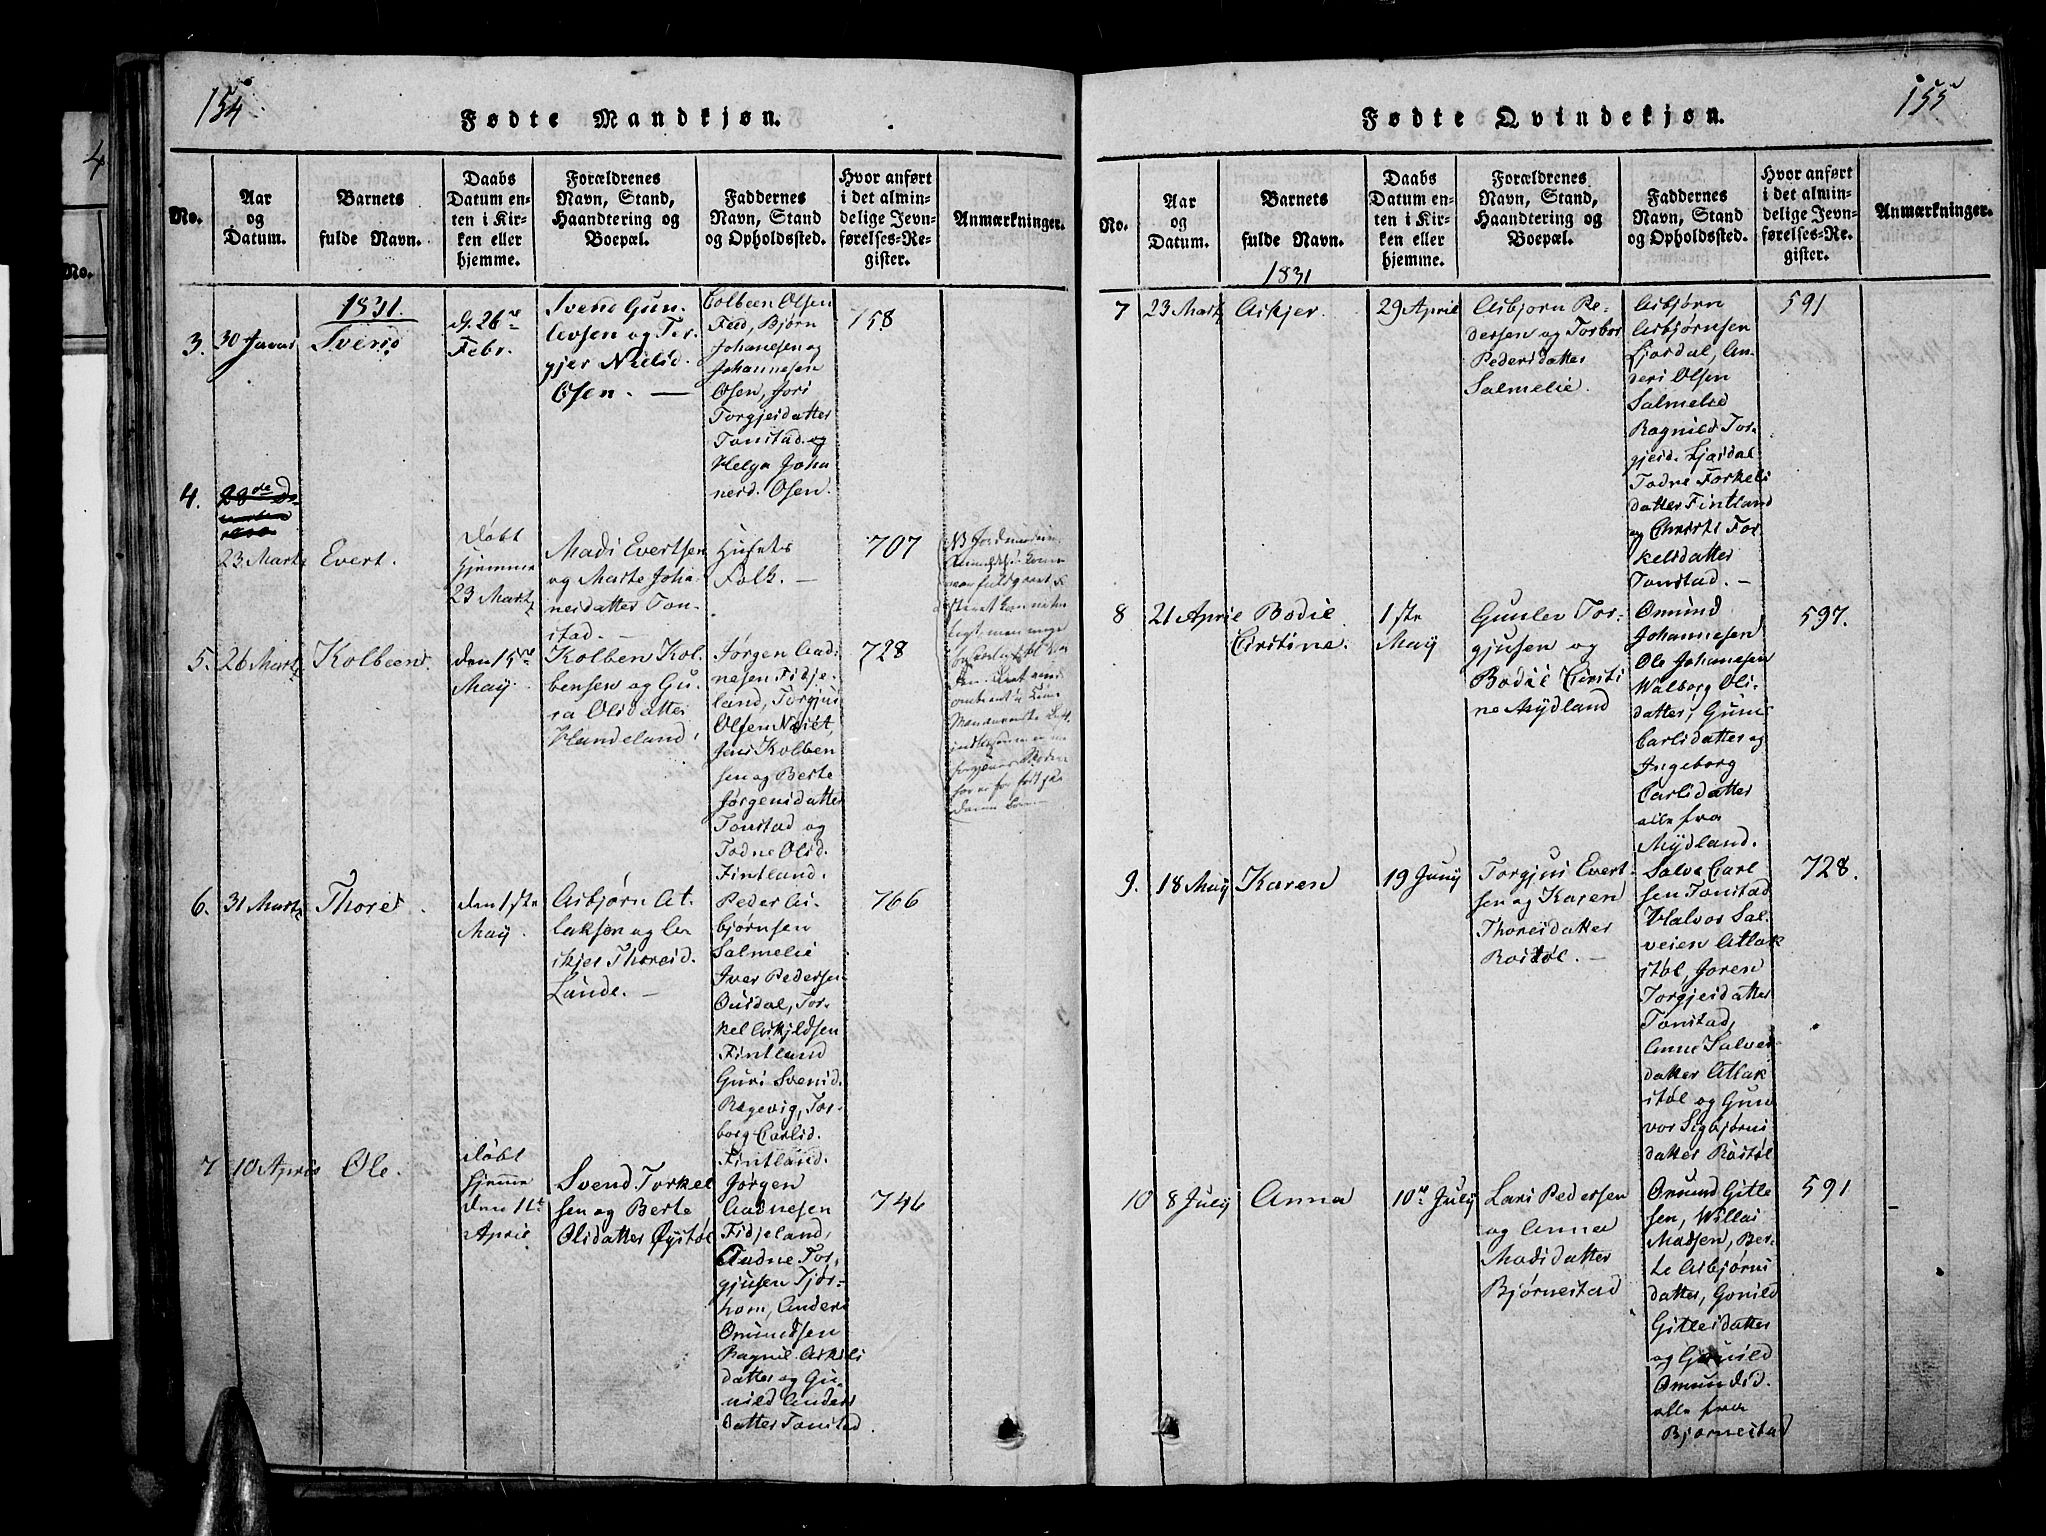 154
Fødte Mandkjøn.
No.
Aar
og
Datum.
Barnets
fulde Navn.
Daabs
Datum en-
ten i Kir-
ken eller
hjemme.
Forældrenes
Navn, Stand,
Haandtering og
Boepæl.
Faddernes
Navn, Stand
og Opholdssted.
Hvor anført
i det almin-
delige Jevn-
førelses-Re-
gister.
Anmærkninger.
1831.
3.
30 Januar
Svend
d. 26de
Febr.
Svend Gun-
levsen og Tor-
gjer Nielsd.
Osen.
Colbeen Olsen
Fed, Bjørn
Johanesen og
Johannesen
Osen, Jori
Torgjeisdatter
Tonstad og
Helga Joha
nesd. Osen.
758
4.
23 Marts
Evert.
Døbt
hjemme
23 Marts
Mads Evertsen
og Marte Joha-
nesdatter Ton-
stad.
Husets
Folk.
707
5.
26 Marts
Kolbeen.
den 15de
May.
Kolben Kol-
bensen og Gu-
ra Olsdatter
Handeland.
Jørgen Aad-
nesen Fidje-
land, Torgjus
Olsen Neset,
Jens Kolben
sen og Berte
Jørgensdatter
Tonstad og
Todne Olsd.
Fintland.
728
6.
31 Marts
Thore
den 1ste
May.
Asbjørn At-
laksen og As-
kjer Thoresd.
Lunde.
Peder As-
bjørnsen
Salmelie
Iver Pedersen
Ousdal, Tor-
kel Askjeldsen
Fintland
Guri Svensd.
Regevig, Tor-
borg Carlsd.
Fintland.
766
7
10 April
Ole.
Døbt
hjemme
den 11te
April.
Svend Torkel
sen og Berte
Olsdatter Øystøl
Jørgen
Aadnesen
Fidjeland,
Audne Tor-
gjusen Tjør-
hom, Anders
Omundsen
Ragnil Askils
datter og Gu-
nild Anders
datter Tonstad.
746
155
Fødte Qvindekjøn.
No.
Aar
og
Datum.
Barnets
fulde Navn.
Daabs
Datum en-
ten i Kir-
ken eller
hjemme.
Forældrenes
Navn, Stand,
Haandtering og
Boepæl.
Faddernes
Navn, Stand
og Opholdssted.
Hvor anført
i det almin-
delige Jevn-
førelses-Re-
gister.
Anmærkninger.
1831
7
23 Marts
Askjer.
29 April
Asbjørn Pe-
dersen og Torbor
Pedersdatter
Salmelie.
Asbjørn
Asbjørnsen
Ljosdal, An-
ders Olsen
Salmelie
Ragnild Tor-
gjeisd. Ljosdal
Todne Torkels
datter Fintland
og Christi Tor-
kelsdatter
Tonstad.
591
8
21 April
Bodil
Cirstine.
1ste
May
Gunlev Tor-
gjusen og
Bodil Cirsti
ne Mydland
Omund
Johannesen
Ole Johanesen
Walborg Ols-
datter, Guni
Carlsdatter og
Ingeborg
Carlsdatter
alle fra
Mydland.
597.
9.
18 May
Karen
19 Juny
Torgjus Evert-
sen og Karen
Thoresdatter
Rostøl.
Salve Carl
sen Tonstad
Halvor Sal-
vesen Atlak
støl, Joren
Torgjeisdatter
Tonstad,
Anne Salves
datter Atlak
støl og Gun
vor Sigbjørns
datter Rostøl
728.
10
8 July
Anna
10de July
Lars Pedersen
og Anna
Madsdatter
Bjørnestad
Omund Gitle
sen, Willas
Madsen, Ber-
te Asbjørns
datter, Gonild
Gitlesdatter
og Gunild
Omundsd.
alle fra
Bjørnestad
591
4
No.